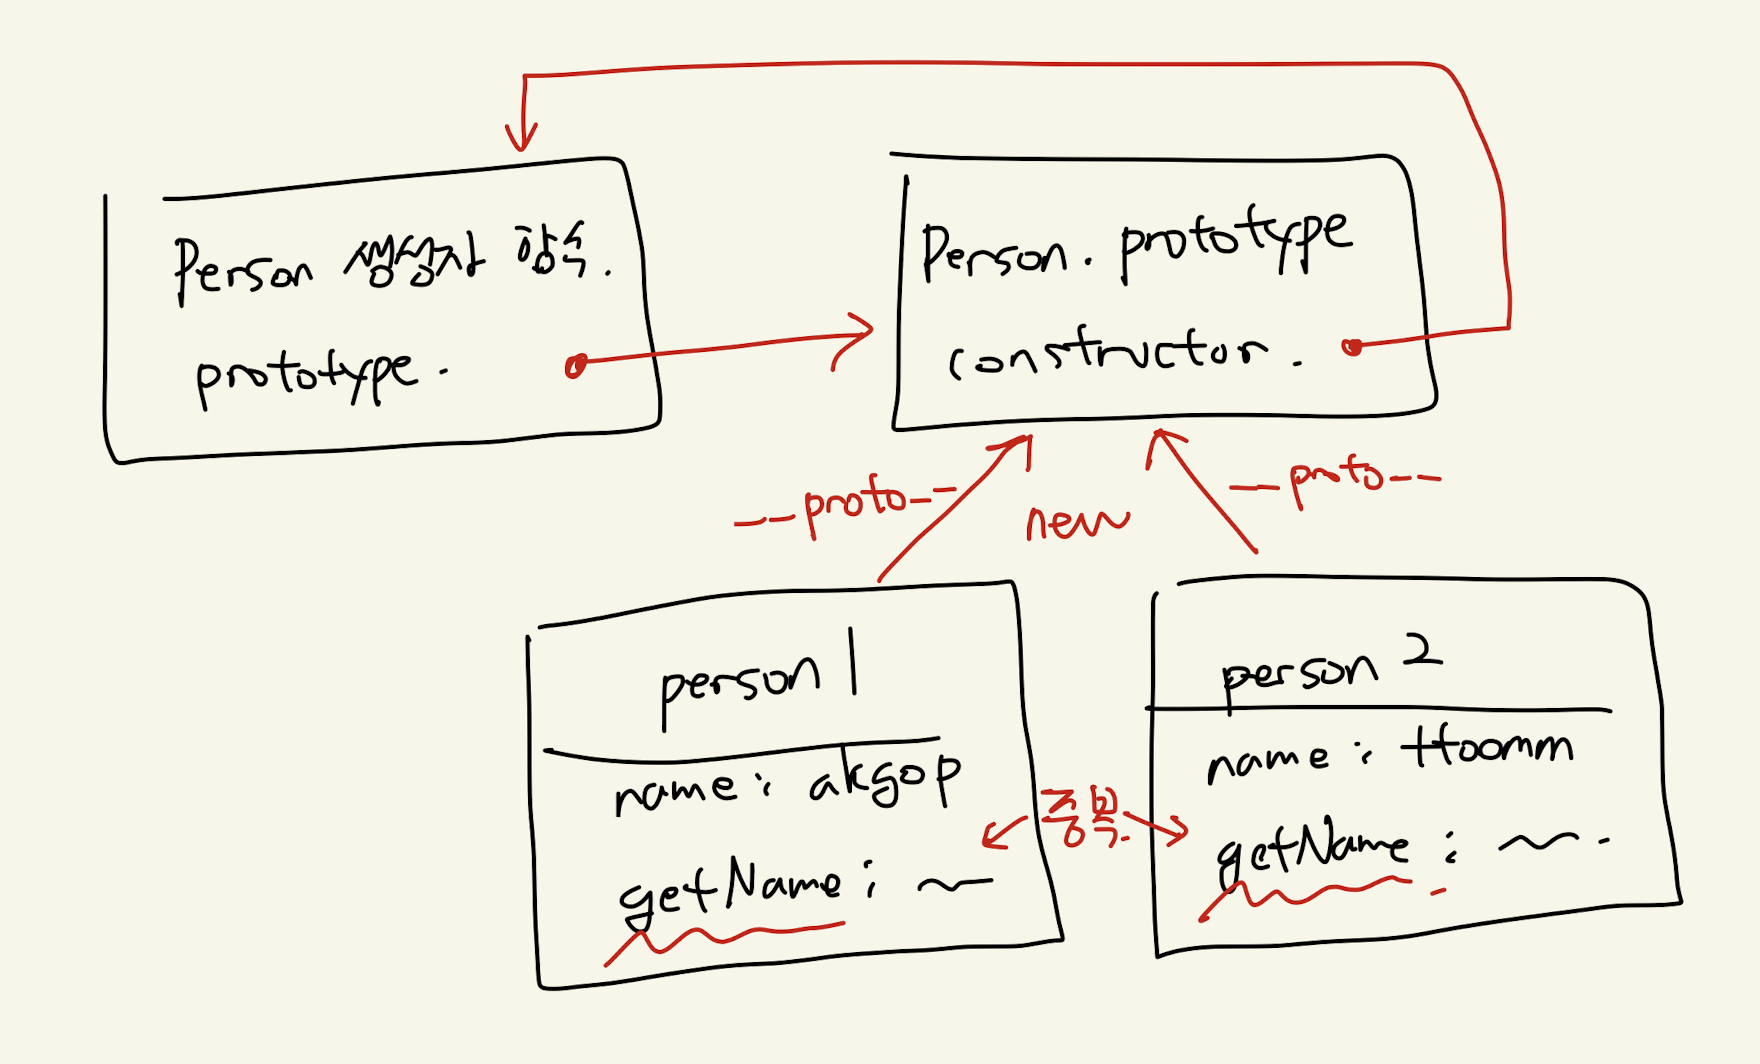 Person 생성자 함수.
prototype.
Person. prototype
constructor.
__proto__
new
__proto__
person 1
name : akgop
getName : ~
중복.
person 2
name : Hoomm
getName : ~.